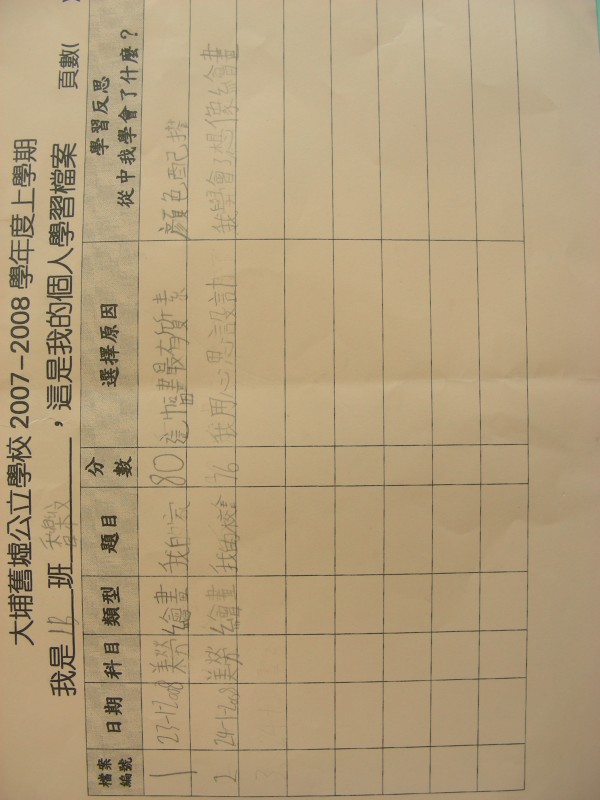 大埔舊墟公立學校 2007-2008 學年度上學期
我是 1B 班，這是我的個人學習檔案 頁數(
檔案編號 日期 科目 類型 題目 分數 選擇原因 學習反思 從中我學會了什麼？
1 23-1-2008 美勞 繪畫 我的家 80 這幅畫最有質素 顏色配搭
2 24-1-2008 美勞 繪畫 我的校舍 76 我用心思設計 我學會了想像繪畫